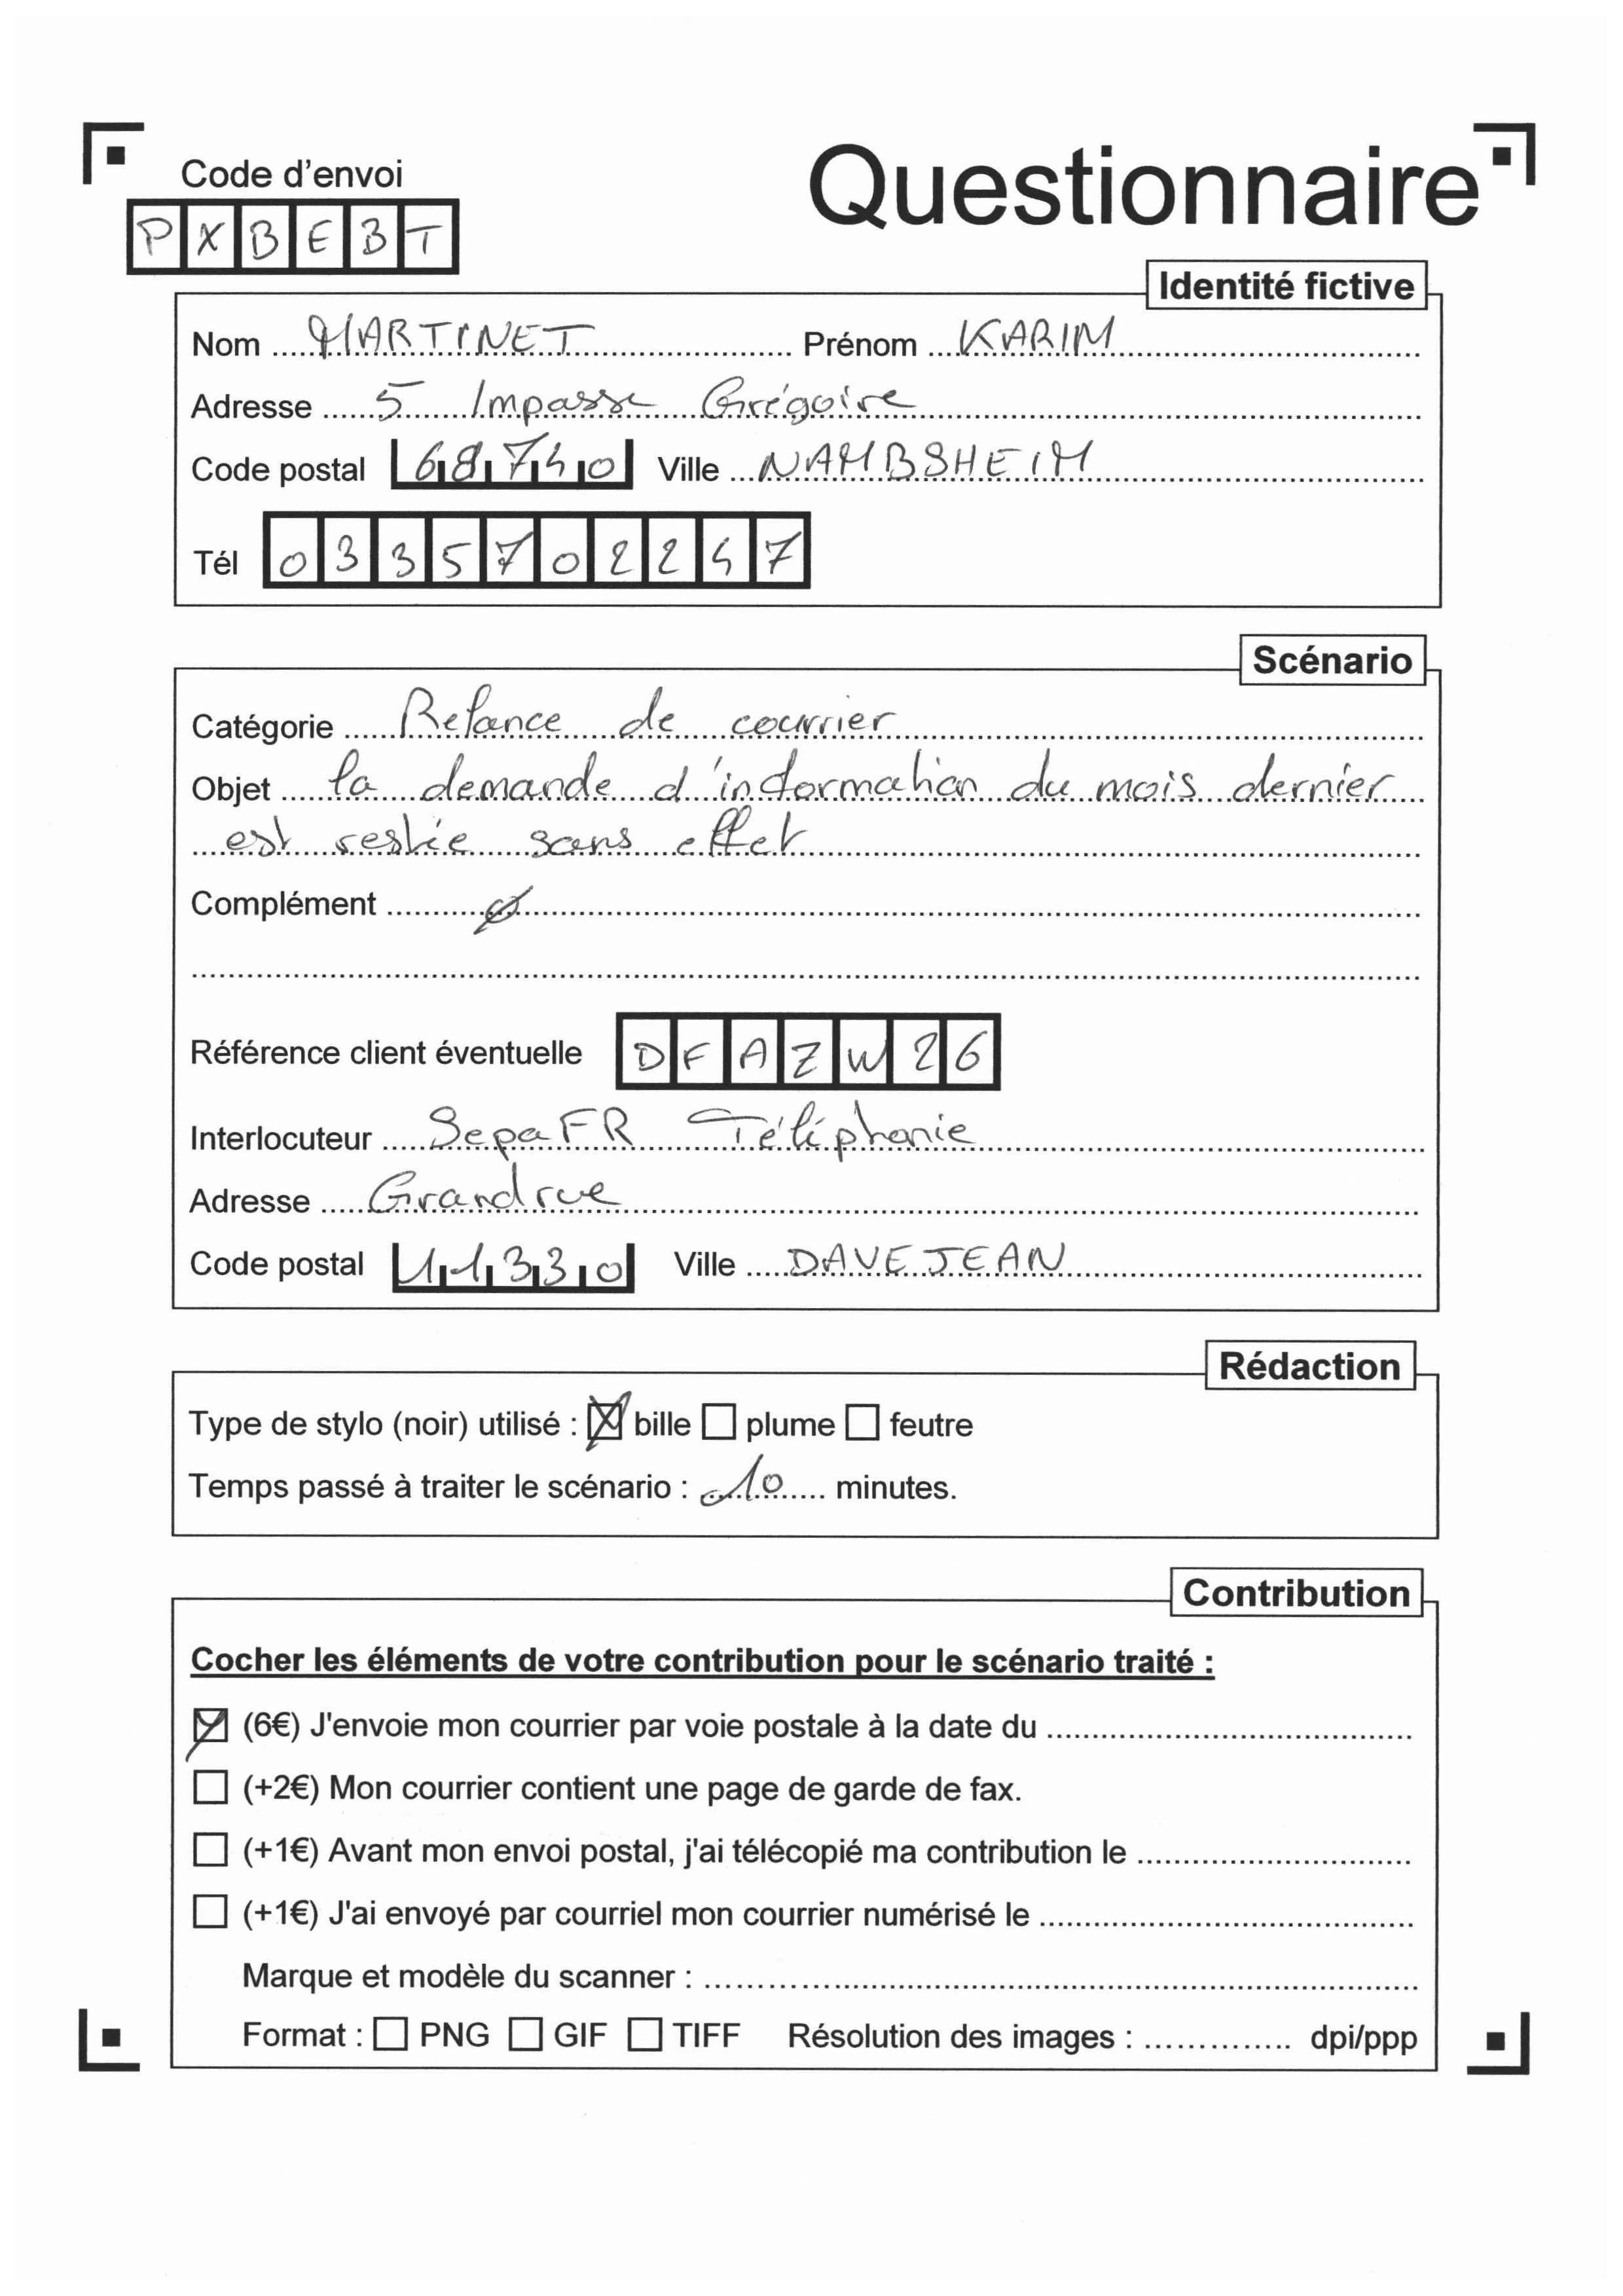 Code d'envoi
PXBEBT
Questionnaire
Identité fictive
Nom MARTINET Prénom KARIM
Adresse 5 Impasse Grégoire
Code postal 68740 Ville NAMBSHEIM
Tél 0335702247
Scénario
Catégorie Relance de courrier
Objet la demande d'information du mois dernier
est restée sans effet
Complément ø
Référence client éventuelle DFAZW26
Interlocuteur SepaFR Téléphonie
Adresse Grandrue
Code postal 11330 Ville DAVEJEAN
Rédaction
Type de stylo (noir) utilisé : bille plume feutre
Temps passé à traiter le scénario : 10 minutes.
Contribution
Cocher les éléments de votre contribution pour le scénario traité :
(6€) J'envoie mon courrier par voie postale à la date du
(+2€) Mon courrier contient une page de garde de fax.
(+1€) Avant mon envoi postal, j'ai télécopié ma contribution le
(+1€) J'ai envoyé par courriel mon courrier numérisé le
Marque et modèle du scanner :
Format : PNG GIF TIFF Résolution des images : dpi/ppp